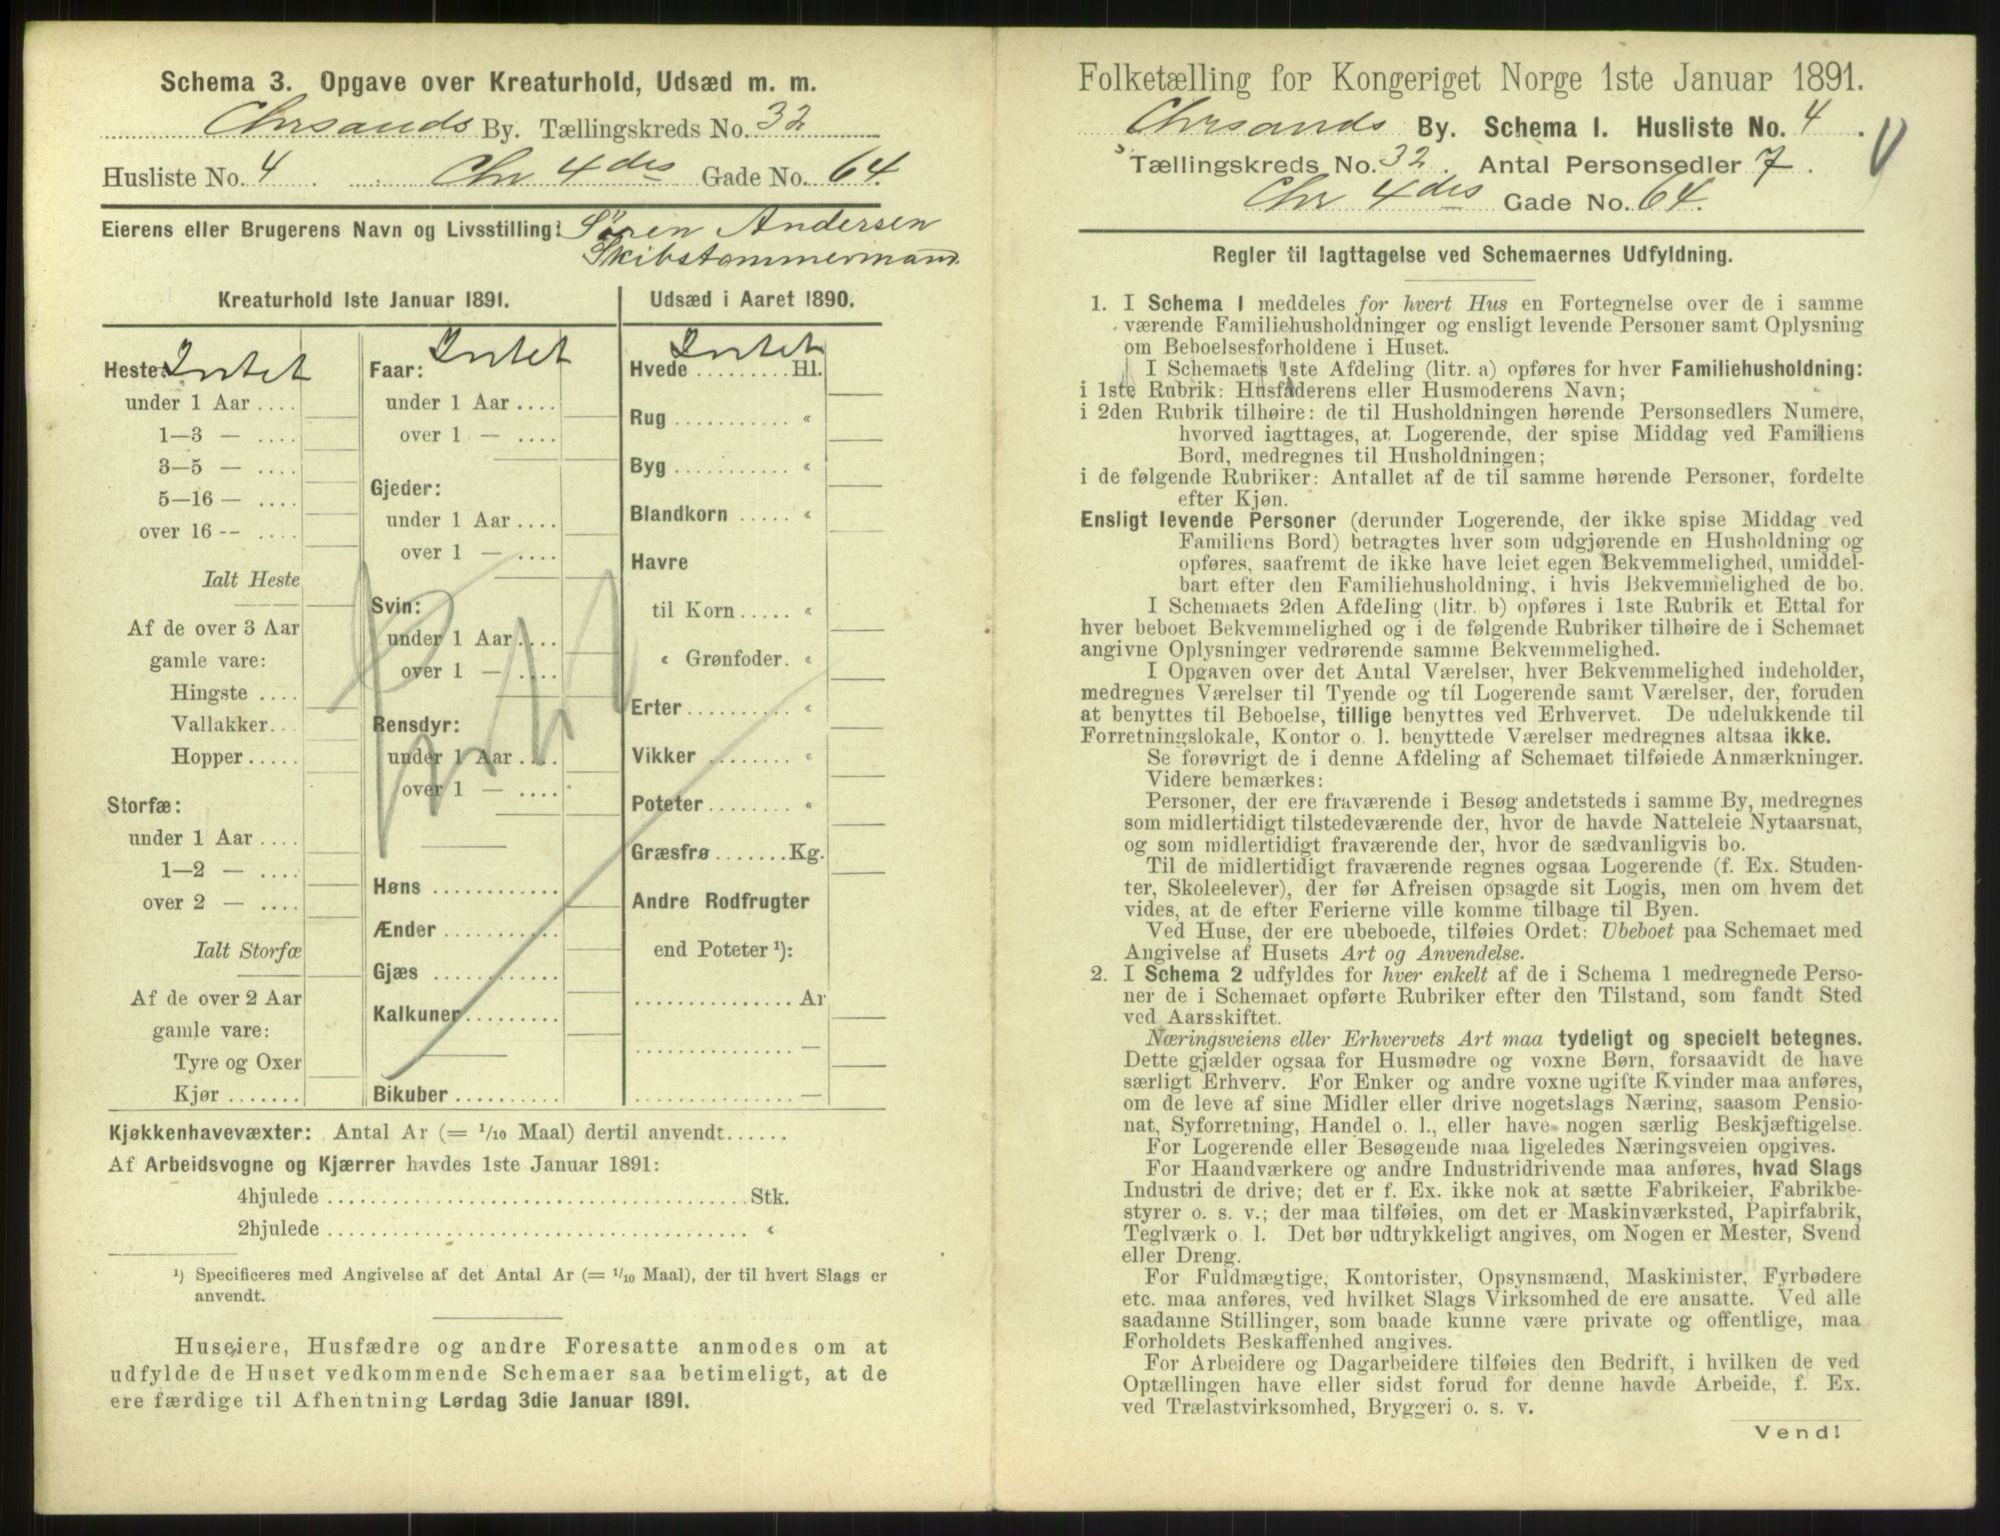 Schema 3. Opgave over Kreaturhold, Udsæd m. m.
Chrsands By. Tællingskreds No. 32
Husliste No. 4 Chr 4des Gade No. 64.
Eierens eller Brugerens Navn og Livsstilling: Sören Andersen
Skibstømmermand
Kreaturhold 1ste Januar 1891.
Heste: Intet
under 1 Aar ....
1—3 — ....
3—5 — ....
5—16 — ....
over 16 -- ....
Ialt Heste
Af de over 3 Aar
gamle vare:
Hingste ....
Vallakker...
Hopper.....
Storfæ:
under 1 Aar ....
1—2 — ....
over 2 — ....
Ialt Storfæ
Af de over 2 Aar
gamle vare:
Tyre og Oxer
Kjør .......
Intet
Faar:
under 1 Aar ....
over 1 — ....
Gjeder:
under 1 Aar ....
over 1 — ....
Svin:
under 1 Aar ....
over 1 — ....
Rensdyr:
under 1 Aar ....
over 1 — ....
Høns ............
Ænder ...........
Gjæs ............
Kalkuner.........
Bikuber ..........
Udsæd i Aaret 1890.
Intet
Hvede ........ Hl.
Rug .......... «
Byg .......... «
Blandkorn ..... «
Havre
til Korn ..... «
« Grønfoder. «
Erter ......... «
Vikker ........ «
Poteter ........ «
Græsfrø ....... Kg.
Andre Rodfrugter
end Poteter ¹):
............... Ar
............... —
............... —
Kjøkkenhavevæxter: Antal Ar (= 1/10 Maal) dertil anvendt......
Af Arbeidsvogne og Kjærrer havdes 1ste Januar 1891:
4hjulede ........................................ Stk.
2hjulede ........................................ «
¹) Specificeres med Angivelse af det Antal Ar (= 1/10 Maal), der til hvert Slags er
anvendt.
Huseiere, Husfædre og andre Foresatte anmodes om at
udfylde de Huset vedkommende Schemaer saa betimeligt, at de
ere færdige til Afhentning Lørdag 3die Januar 1891.
Folketælling for Kongeriget Norge 1ste Januar 1891.
Chrsands By. Schema 1. Husliste No. 4.
Tællingskreds No. 32. Antal Personsedler 7.
Chr 4des Gade No. 64.
Regler til Iagttagelse ved Schemaernes Udfyldning.
1. I Schema 1 meddeles for hvert Hus en Fortegnelse over de i samme
værende Familiehusholdninger og ensligt levende Personer samt Oplysning
om Beboelsesforholdene i Huset.
I Schemaets 1ste Afdeling (litr. a) opføres for hver Familiehusholdning:
i 1ste Rubrik: Husfaderens eller Husmoderens Navn;
i 2den Rubrik tilhøire: de til Husholdningen hørende Personsedlers Numere,
hvorved iagttages, at Logerende, der spise Middag ved Familiens
Bord, medregnes til Husholdningen;
i de følgende Rubriker: Antallet af de til samme hørende Personer, fordelte
efter Kjøn.
Ensligt levende Personer (derunder Logerende, der ikke spise Middag ved
Familiens Bord) betragtes hver som udgjørende en Husholdning og
opføres, saafremt de ikke have leiet egen Bekvemmelighed, umiddel-
bart efter den Familiehusholdning, i hvis Bekvemmelighed de bo.
I Schemaets 2den Afdeling (litr. b) opføres i 1ste Rubrik et Ettal for
hver beboet Bekvemmelighed og i de følgende Rubriker tilhøire de i Schemaet
angivne Oplysninger vedrørende samme Bekvemmelighed.
I Opgaven over det Antal Værelser, hver Bekvemmelighed indeholder,
medregnes Værelser til Tyende og til Logerende samt Værelser, der, foruden
at benyttes til Beboelse, tillige benyttes ved Erhvervet. De udelukkende til
Forretningslokale, Kontor o. l. benyttede Værelser medregnes altsaa ikke.
Se forøvrigt de i denne Afdeling af Schemaet tilføiede Anmærkninger.
Videre bemærkes:
Personer, der ere fraværende i Besøg andetsteds i samme By, medregnes
som midlertidigt tilstedeværende der, hvor de havde Natteleie Nytaarsnat,
og som midlertidigt fraværende der, hvor de sædvanligvis bo.
Til de midlertidigt fraværende regnes ogsaa Logerende (f. Ex. Studen-
ter, Skoleelever), der før Afreisen opsagde sit Logis, men om hvem det
vides, at de efter Ferierne ville komme tilbage til Byen.
Ved Huse, der ere ubeboede, tilføies Ordet: Ubeboet paa Schemaet med
Angivelse af Husets Art og Anvendelse.
2. I Schema 2 udfyldes for hver enkelt af de i Schema 1 medregnede Perso-
ner de i Schemaet opførte Rubriker efter den Tilstand, som fandt Sted
ved Aarsskiftet.
Næringsveiens eller Erhvervets Art maa tydeligt og specielt betegnes.
Dette gjælder ogsaa for Husmødre og voxne Børn, forsaavidt de have
særligt Erhverv. For Enker og andre voxne ugifte Kvinder maa anføres,
om de leve af sine Midler eller drive nogetslags Næring, saasom Pensio-
nat, Syforretning, Handel o. l., eller have nogen særlig Beskjæftigelse.
For Logerende eller Besøgende maa ligeledes Næringsveien opgives.
For Haandværkere og andre Industridrivende maa anføres, hvad Slags
Industri de drive; det er f. Ex. ikke nok at sætte Fabrikeier, Fabrikbe-
styrer o. s. v.; der maa tilføies, om det er Maskinværksted, Papirfabrik,
Teglværk o. l. Det bør udtrykkeligt angives, om Nogen er Mester, Svend
eller Dreng.
For Fuldmægtige, Kontorister, Opsynsmænd, Maskinister, Fyrbødere
etc. maa anføres, ved hvilket Slags Virksomhed de ere ansatte. Ved alle
saadanne Stillinger, som baade kunne være private og offentlige, maa
Forholdets Beskaffenhed angives.
For Arbeidere og Dagarbeidere tilføies den Bedrift, i hvilken de ved
Optællingen have eller sidst forud for denne havde Arbeide, f. Ex.
ved Trælastvirksomhed, Bryggeri o. s. v.
Vend!